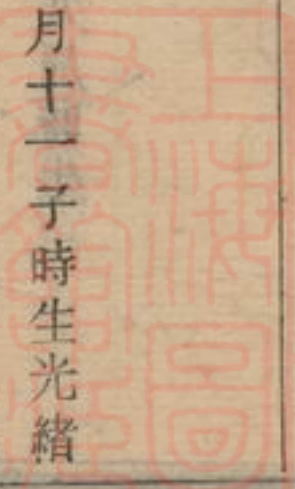 月十一子時生光緒
上海圖
書館藏